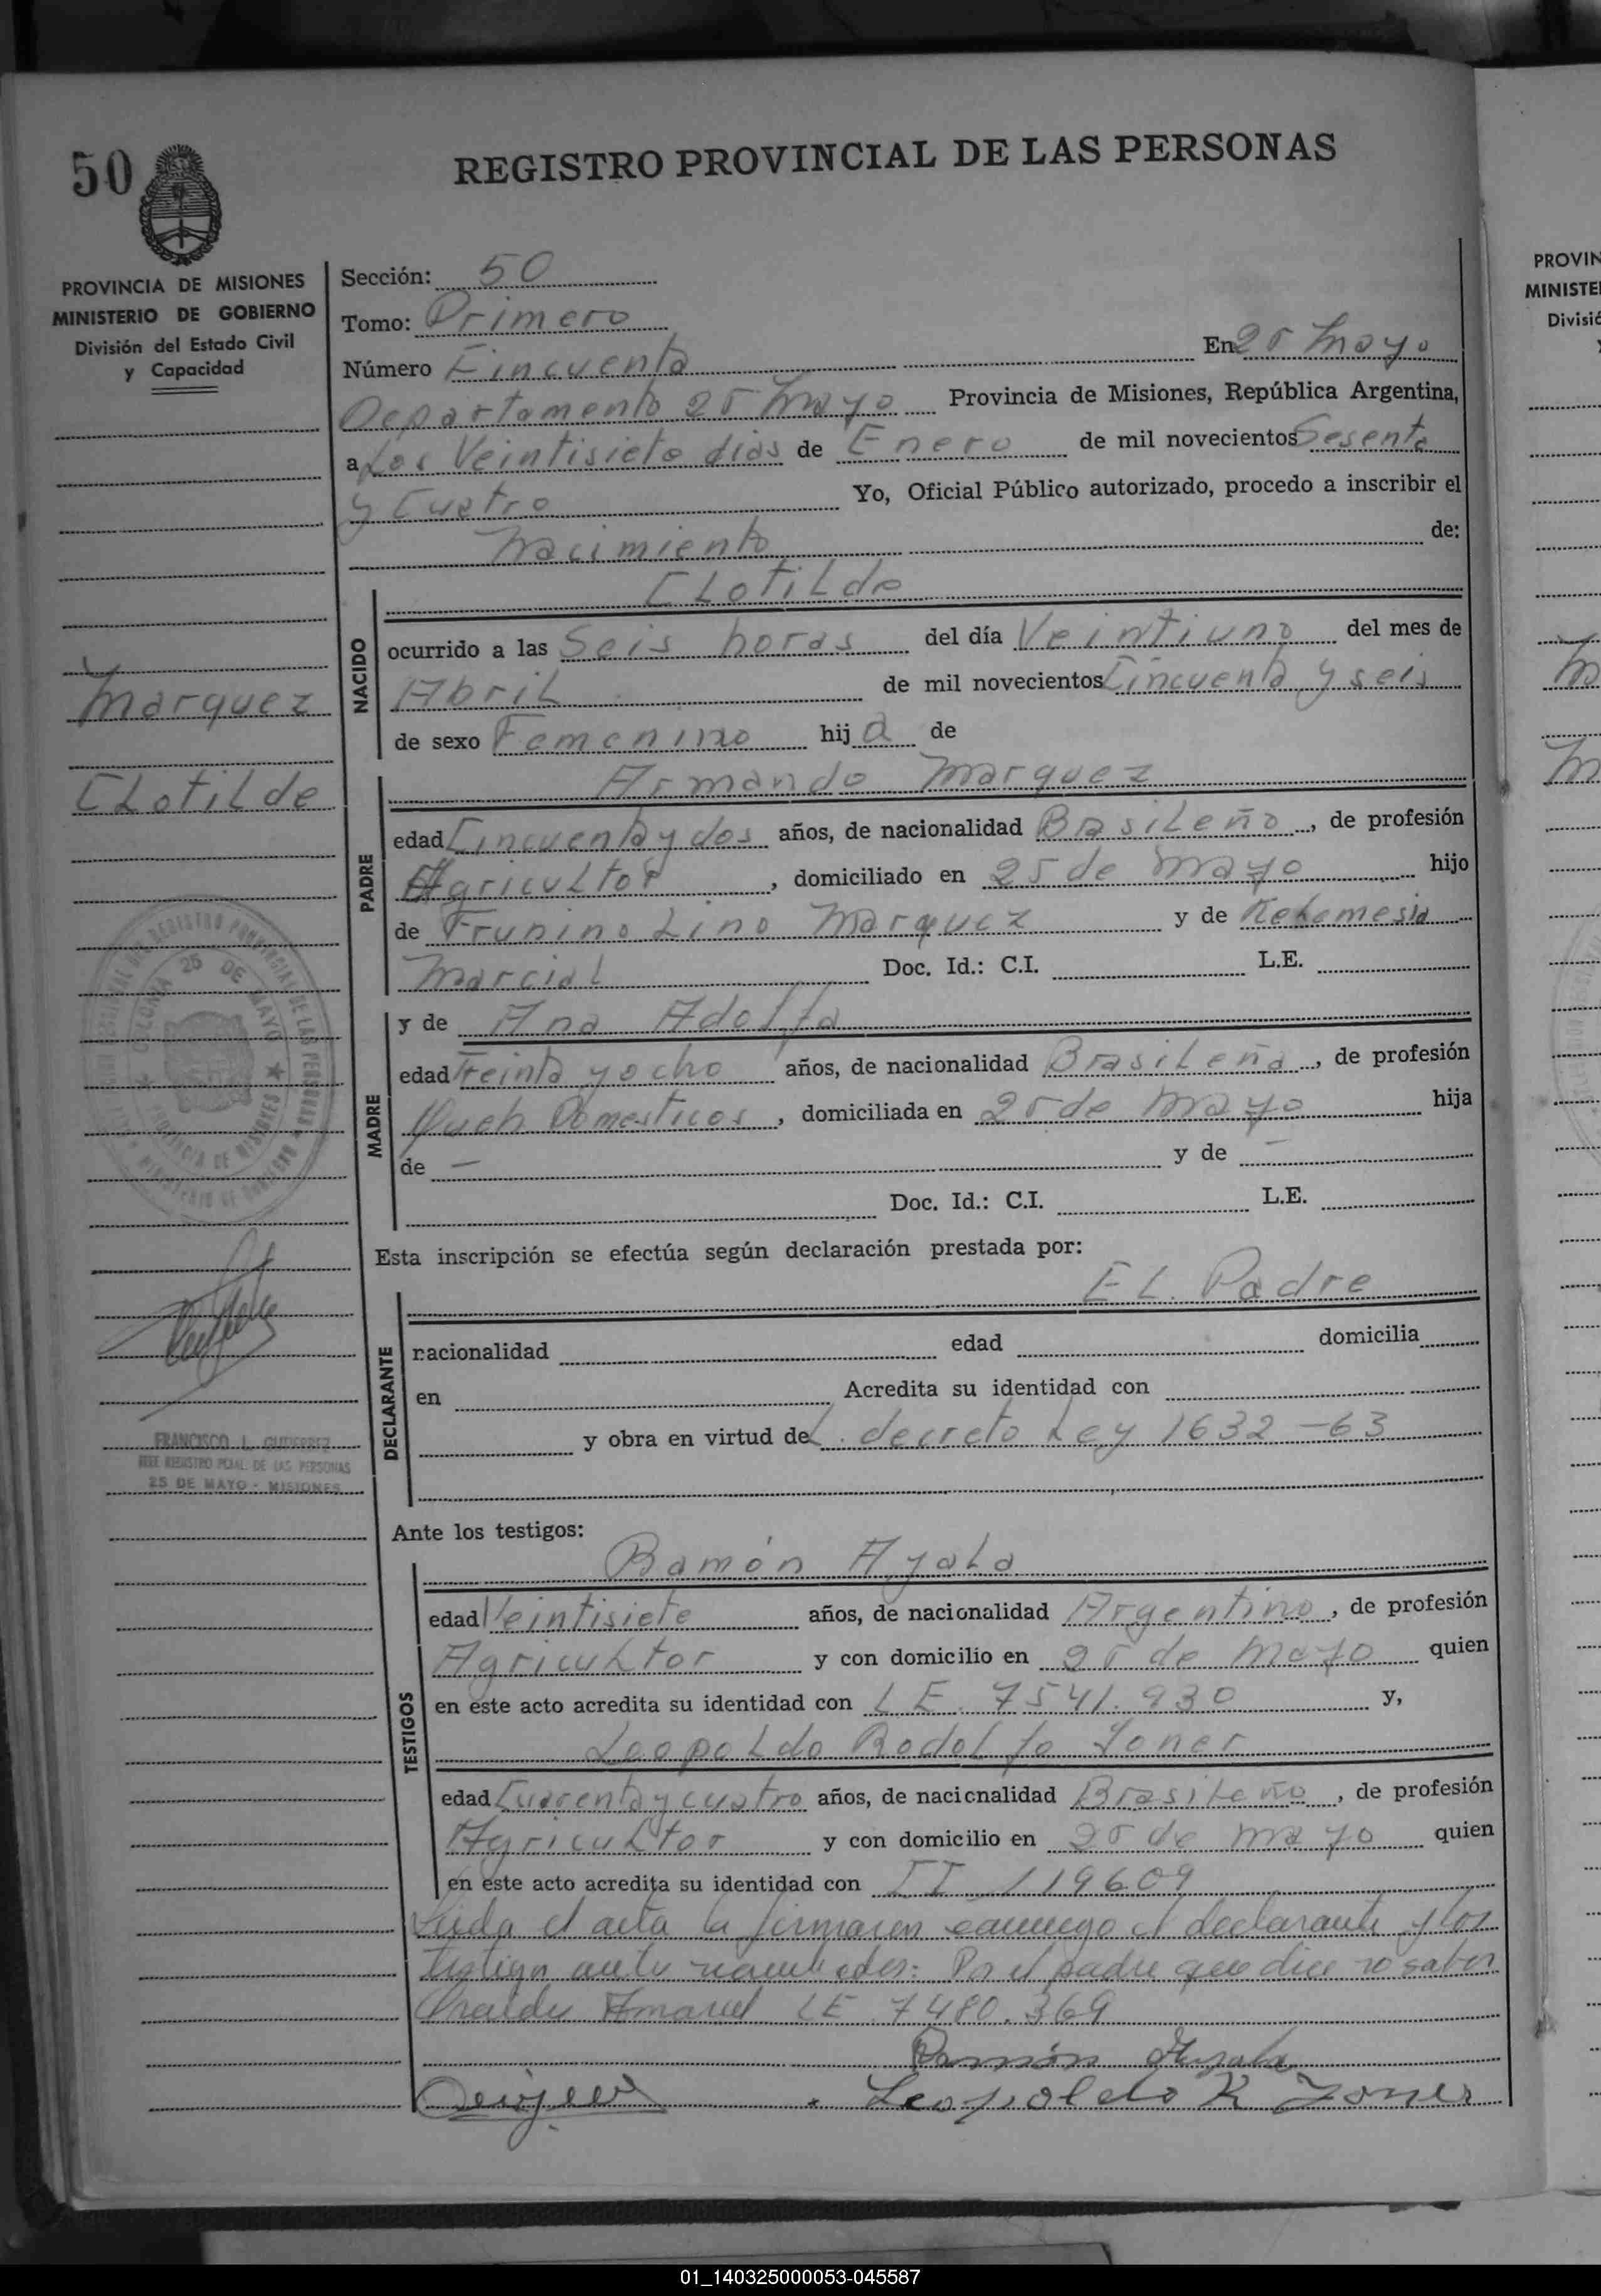 50
REGISTRO PROVINCIAL DE LAS PERSONAS
PROVINCIA DE MISIONES
MINISTERIO DE GOBIERNO
División del Estado Civil
y Capacidad
Sección: 50
Tomo: Primero
Número Cincuenta En 25 Mayo
Departamento 25 Mayo Provincia de Misiones, República Argentina,
a Los Veintisiete dias de Enero de mil novecientos Sesenta
y Cuatro Yo, Oficial Público autorizado, procedo a inscribir el
Nacimiento de:
Marquez
Clotilde
NACIDO
CLotiLde
ocurrido a las Seis horas del día Veintiuno del mes de
Abril de mil novecientos Cincuenta y seis
de sexo Femenino hij a de
PADRE
Armando Marquez
edad Cincuenta y dos años, de nacionalidad Brasileño, de profesión
Agricultor, domiciliado en 25 de Mayo hijo
de Lino Marquez y de
Marcial Doc. Id.: C.I. L.E.
MADRE
y de Ana Adolfa
edad Treinta y ocho años, de nacionalidad Brasileña, de profesión
Queh Domesticos, domiciliada en 25 de Mayo hija
de — y de —
Doc. Id.: C.I. L.E.
Esta inscripción se efectúa según declaración prestada por:
DECLARANTE
EL Padre
nacionalidad edad domicilia
en Acredita su identidad con
y obra en virtud de L. decreto Ley 1632-63
FRANCISCO L. GUTIERREZ
JEFE REGISTRO PCIAL. DE LAS PERSONAS
25 DE MAYO - MISIONES
Ante los testigos:
TESTIGOS
Ramón Ayala
edad Veintisiete años, de nacionalidad Argentino, de profesión
Agricultor y con domicilio en 25 de Mayo quien
en este acto acredita su identidad con L E. 7541.930 y,
Leopoldo Rodolfo Joner
edad Cuarenta y cuatro años, de nacionalidad Brasileño, de profesión
Agricultor y con domicilio en 25 de Mayo quien
en este acto acredita su identidad con 119609
Leida el acta la firmaron conmigo el declarante y los
testigos antes nombrados: Por el padre que dice no saber
LE 7480.369
Ramón Ayala
Leopoldo R Joner
PROVIN
MINISTE
Divisió
01_140325000053-045587